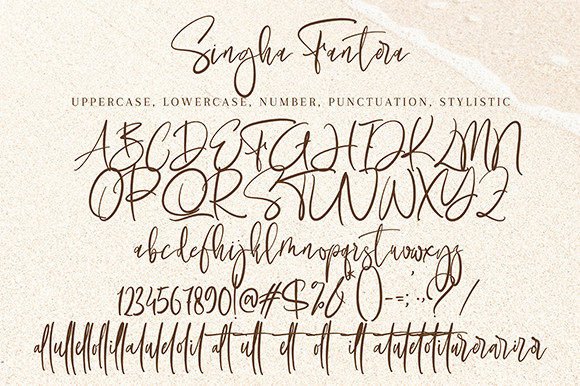 Singha Fantera
UPPERCASE, LOWERCASE, NUMBER, PUNCTUATION, STYLISTIC
ABCDEFGHIJKLMN
OPQRSTUVWXYZ
abcdefghijklmnopqrstuvwxyz
1234567890!@#$%&*()-=;:.,?/